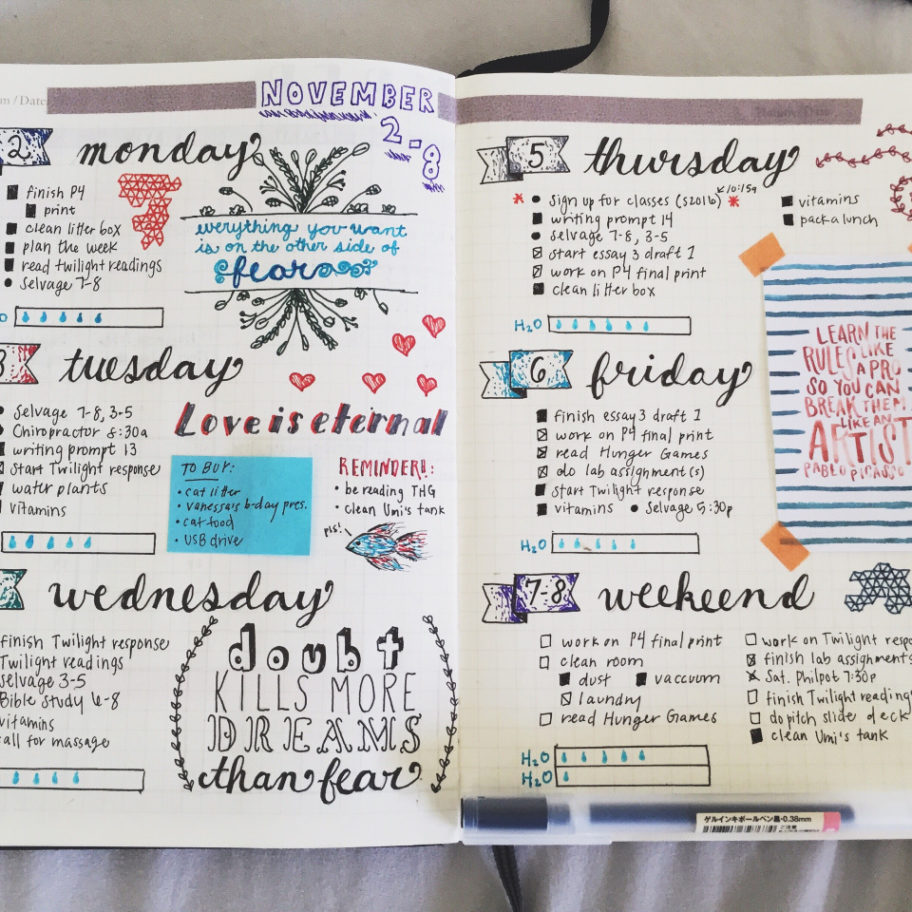 m / Date
NOVEMBER
2-8
2 monday
finish P4
print
clean litter box
plan the week
read twilight readings
Selvage 7-8
everything you want
is on the other side of
fear
tuesday
Selvage 7-8, 3-5
Chiropractor 8:30a
writing prompt 13
start Twilight response
water plants
vitamins
Love is eternal
TO BUY:
• cat litter
• vanessa's b-day pres.
• cat food
• USB drive
REMINDER!:
• be reading THG
• clean Umi's tank
pls!
wednesday
finish Twilight response
Twilight readings
Selvage 3-5
Bible Study 6-8
vitamins
call for massage
doubt
KILLS MORE
DREAMS
than fear
5 thursday
↙10:15a
* Sign up for classes (S2016) *
writing prompt 14
selvage 7-8, 3-5
start essay 3 draft 1
work on P4 final print
clean litter box
vitamins
pack a lunch
H2O
6 friday
finish essay 3 draft 1
work on P4 final print
read Hunger Games
do lab assignment(s)
start Twilight response
vitamins • Selvage 5:30p
H2O
LEARN THE
RULES LIKE
A PRO
SO YOU CAN
BREAK THEM
LIKE AN
ARTIST
PABLO PICASSO
7-8 weekend
work on P4 final print
clean room
dust vaccuum
laundry
read Hunger Games
H2O
H2O
work on Twilight respo
finish lab assignments
Sat. Philpot 7:30p
finish Twilight reading
do pitch slide deck
clean Umi's tank
ゲルインキボールペン黒・0.38mm